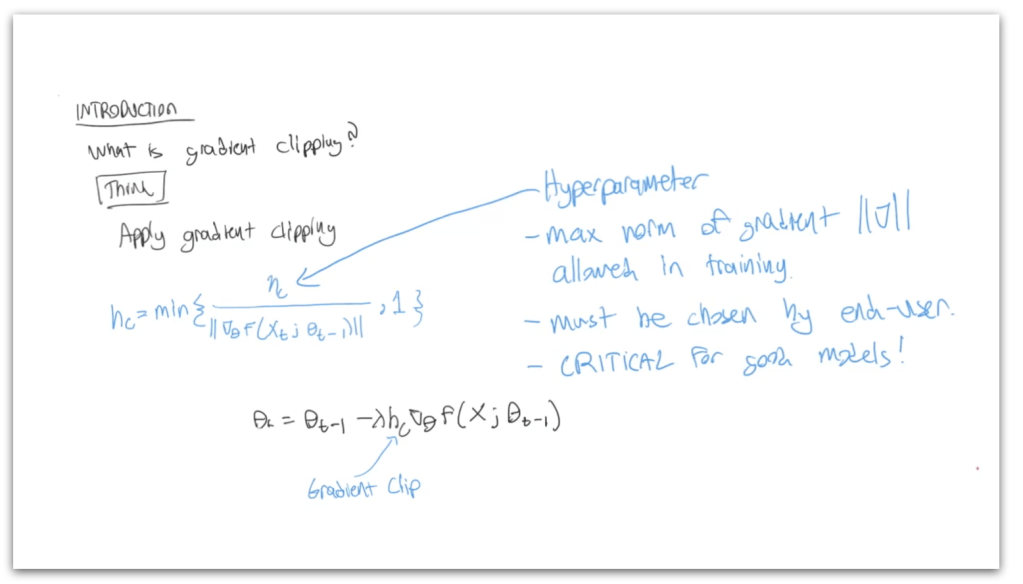 INTRODUCTION
What is gradient clipping?
Think
Apply gradient clipping
h_c = min{ η_c / ||∇_θ f(X_t; θ_{t-1})|| , 1 }
Hyperparameter
- max norm of gradient ||∇||
allowed in training.
- must be chosen by end-user.
- CRITICAL for good models!
θ_t = θ_{t-1} - λ h_c ∇_θ f(X; θ_{t-1})
Gradient Clip